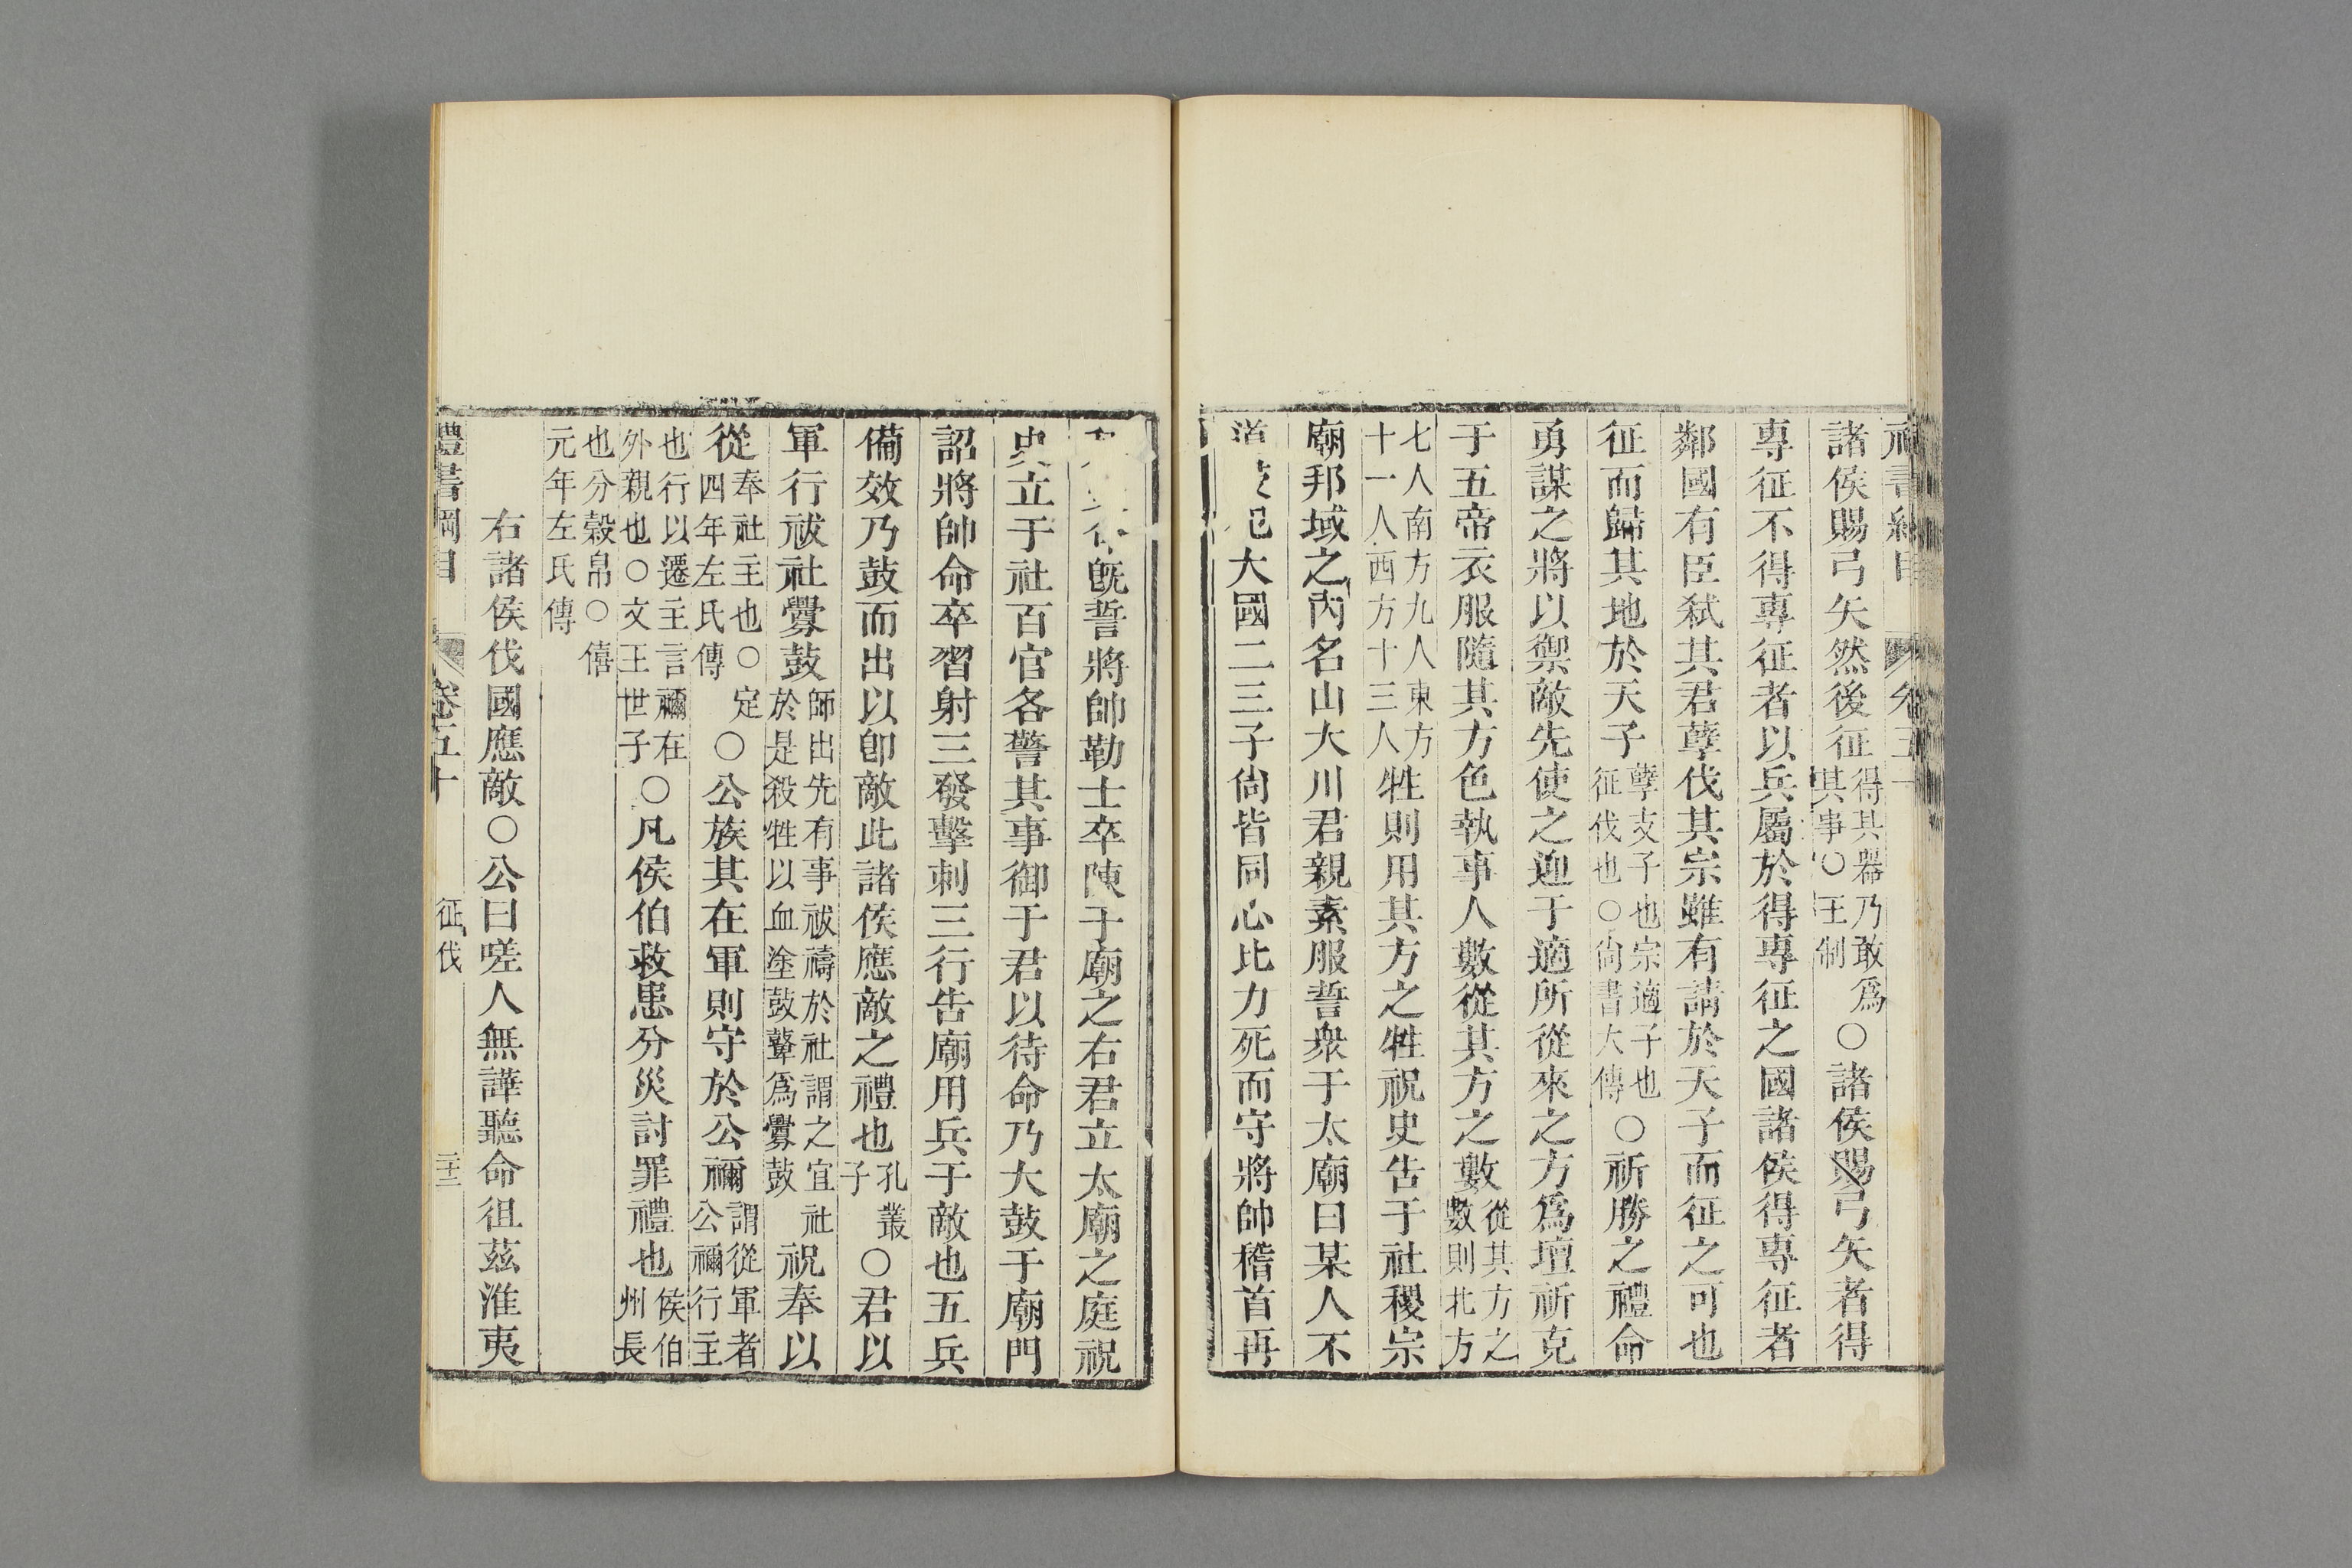 禮書綱目 卷五十
諸侯賜弓矢然後征得其器乃敢爲其事○王制○諸侯賜弓矢者得
專征不得專征者以兵屬於得專征之國諸侯得專征者
鄰國有臣弑其君孽伐其宗雖有請於天子而征之可也
征而歸其地於天子孽支子也宗適子也征伐也○尙書大傳○祈勝之禮命
勇謀之將以禦敵先使之迎于適所從來之方爲壇祈克
于五帝衣服隨其方色執事人數從其方之數從其方之數則北方
七人南方九人東方十一人西方十三人牲則用其方之牲祝史告于社稷宗
廟邦域之內名山大川君親素服誓衆于太廟曰某人不
道犯大國二三子尙皆同心比力死而守將帥稽首再
旣誓將帥勒士卒陳于廟之右君立太廟之庭祝
史立于社百官各警其事御于君以待命乃大鼓于廟門
詔將帥命卒習射三發擊刺三行告廟用兵于敵也五兵
備效乃鼓而出以卽敵此諸侯應敵之禮也孔叢子○君以
軍行祓社釁鼓師出先有事祓禱於社謂之宜社於是殺牲以血塗鼓鼙爲釁鼓祝奉以
從奉社主也○定四年左氏傳○公族其在軍則守於公禰謂從軍者公禰行主
也行以遷主言禰在外親也○文王世子○凡侯伯救患分災討罪禮也侯伯州長
也分穀帛○僖元年左氏傳
右諸侯伐國應敵○公曰嗟人無譁聽命徂茲淮夷
禮書綱目 卷五十 征伐 二十三